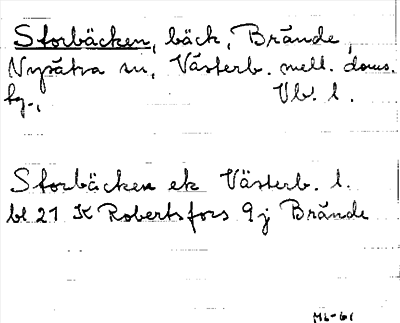 Storbäcken, bäck, Brände,
Nysätra sn, Västerb. mell. doms.
hg., Vb. l.
Storbäcken ek Västerb. l.
bl 21 K Robertsfors 9j Brände
ML-61